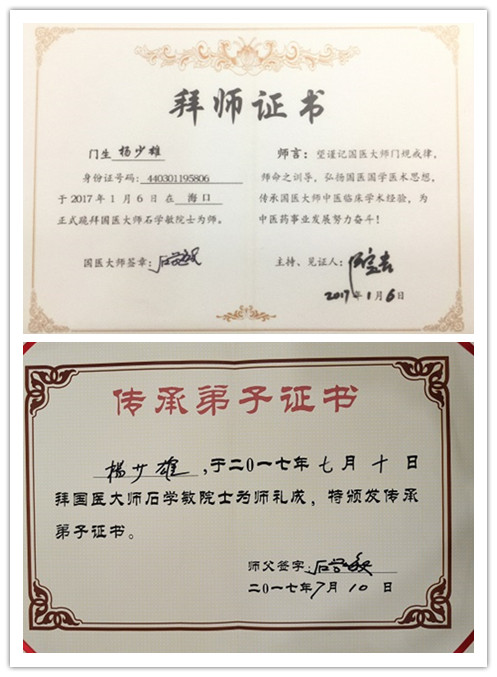 拜师证书
门生 杨少雄
身份证号码：440301195806
于2017年1月6日在 海口
正式跪拜国医大师石学敏院士为师。
国医大师签章：石学敏
师言：望谨记国医大师门规戒律，
师命之训导，弘扬国医国学医术思想，
传承国大师中医临床学术经验，为
中医药事业发展努力奋斗！
主持、见证人：
2017年1月6日
传承弟子证书
杨少雄，于二0一七年七月十日
拜国医大师石学敏院士为师礼成，特颁发传承
弟子证书。
师父签字：石学敏
二0一七年7月10日